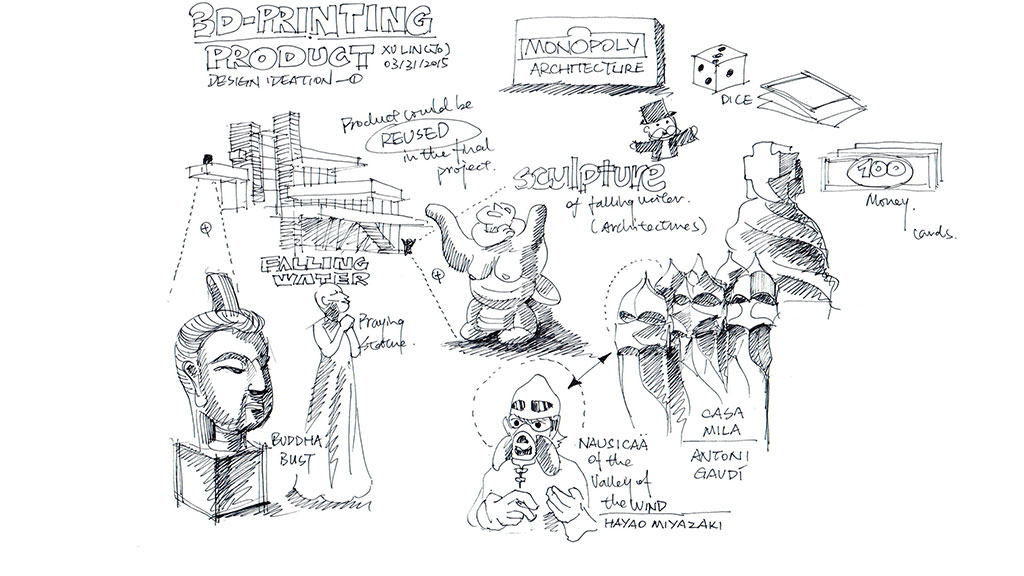 3D-PRINTING
PRODUCT
XU LIN (JO)
03/31/2015
DESIGN IDEATION —①
MONOPOLY
ARCHITECTURE
DICE
Product could be
REUSED
in the final
project.
Sculpture
of falling water.
(Architectures)
100
Money
cards.
FALLING
WATER
Praying
statue.
BUDDHA
BUST
CASA
MILA
ANTONI
GAUDÍ
NAUSICAÄ
of the
Valley of
the WIND
HAYAO MIYAZAKI